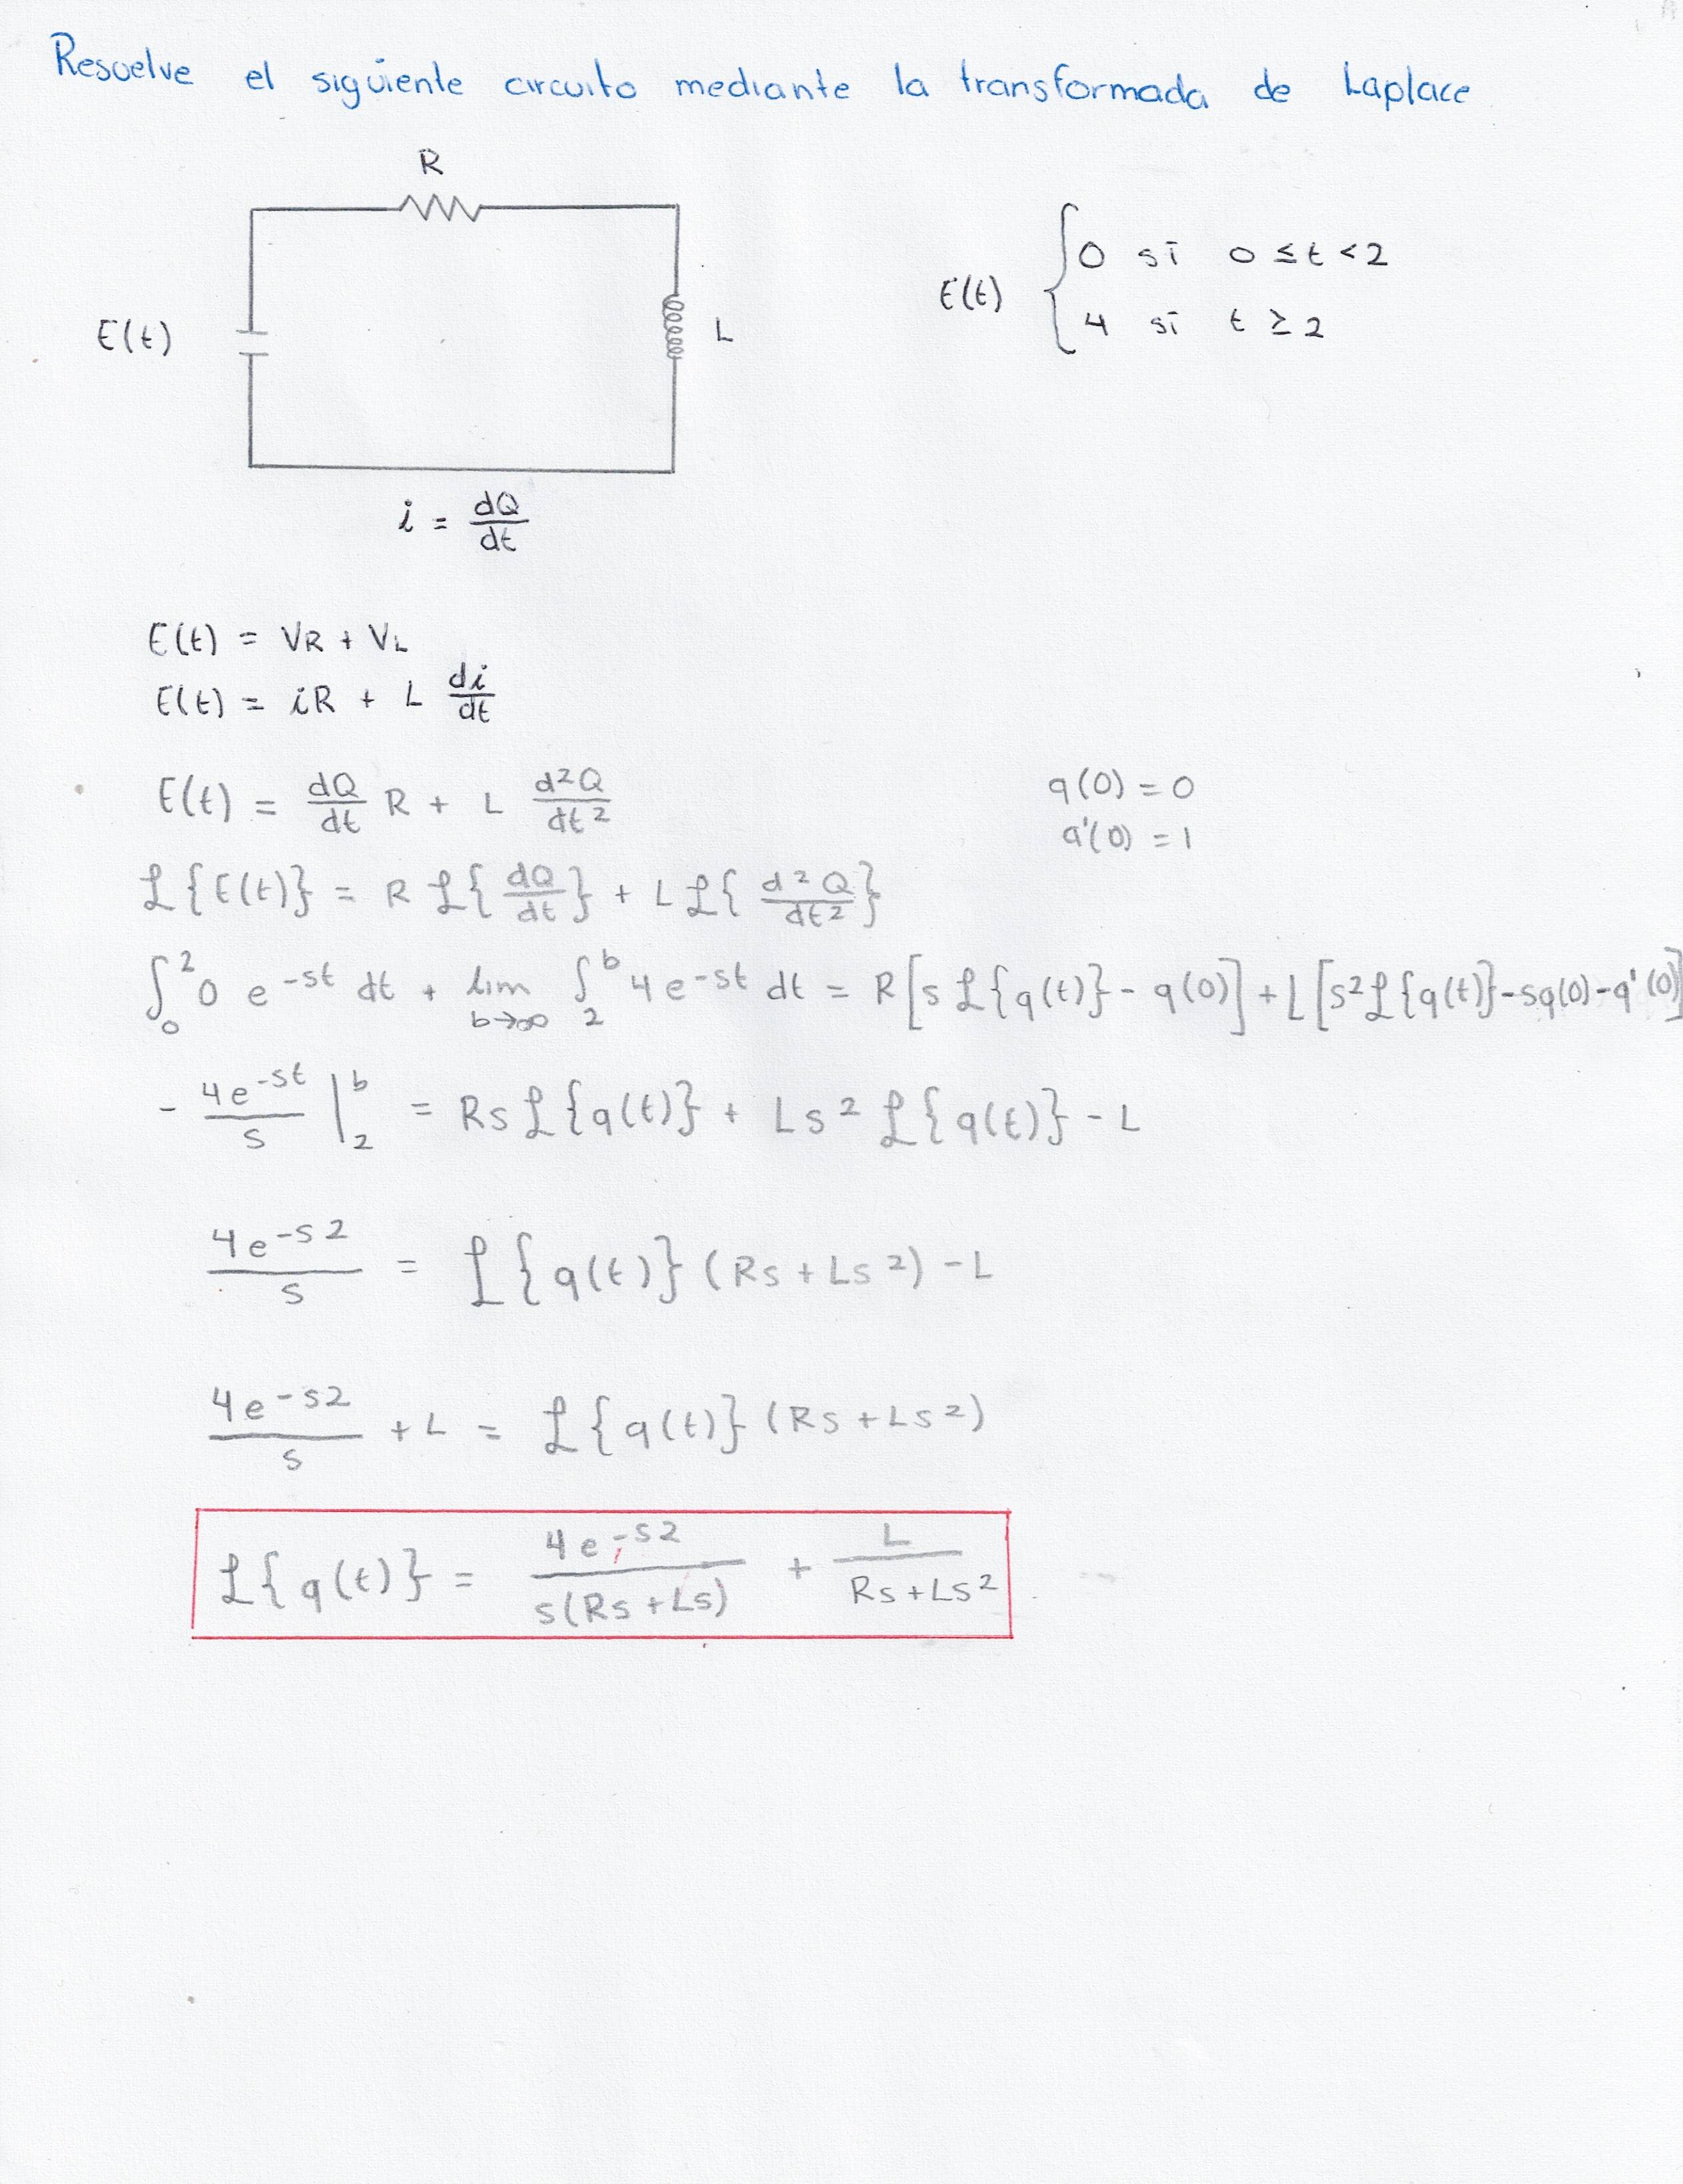 Resuelve el siguiente circuito mediante la transformada de Laplace
R
E(t) { 0 si 0 ≤ t < 2
4 si t ≥ 2
E(t)
L
i = dQ/dt
E(t) = VR + VL
E(t) = iR + L di/dt
E(t) = dQ/dt R + L d²Q/dt²
q(0) = 0
q'(0) = 1
ℒ{E(t)} = R ℒ{dQ/dt} + L ℒ{d²Q/dt²}
∫₀² 0 e^-st dt + lim b→∞ ∫₂ᵇ 4e^-st dt = R[s ℒ{q(t)} - q(0)] + L[s²ℒ{q(t)} - sq(0) - q'(0)]
- 4e^-st/s |₂ᵇ = Rs ℒ{q(t)} + Ls² ℒ{q(t)} - L
4e^-s2/s = ℒ{q(t)} (Rs + Ls²) - L
4e^-s2/s + L = ℒ{q(t)} (Rs + Ls²)
ℒ{q(t)} = 4e^-s2/s(Rs + Ls) + L/Rs + Ls²